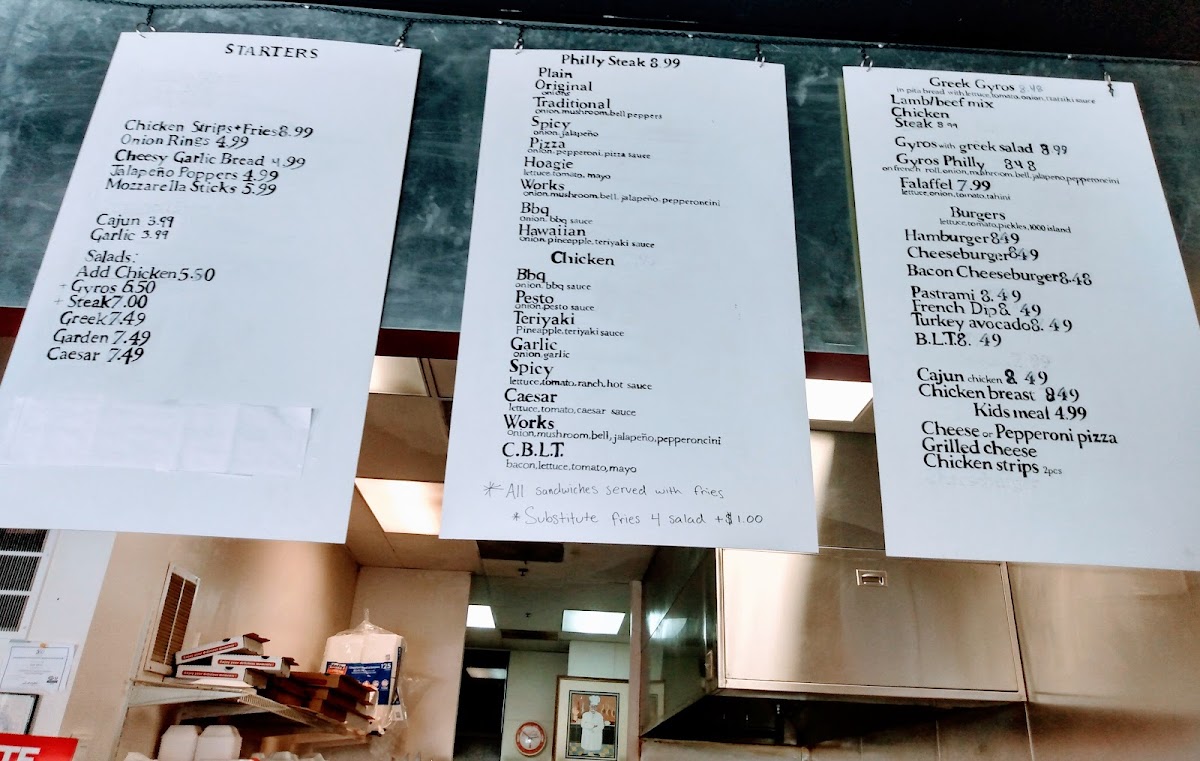 STARTERS
Chicken Strips+Fries 8.99
Onion Rings 4.99
Cheesy Garlic Bread 4.99
Jalapeño Poppers 4.99
Mozzarella Sticks 5.99
Cajun 3.99
Garlic 3.99
Salads:
Add Chicken 5.50
+ Gyros 6.50
+ Steak 7.00
Greek 7.49
Garden 7.49
Caesar 7.49
Philly Steak 8.99
Plain
Original
onion
Traditional
onion,mushroom,bell peppers
Spicy
onion,jalapeño
Pizza
onion,pepperoni,pizza sauce
Hoagie
lettuce,tomato, mayo
Works
onion,mushroom,bell, jalapeño, pepperoncini
Bbq
onion, bbq sauce
Hawaiian
onion,pineapple,teriyaki sauce
Chicken
Bbq
onion, bbq sauce
Pesto
onion,pesto sauce
Teriyaki
Pineapple,teriyaki sauce
Garlic
onion,garlic
Spicy
lettuce,tomato,ranch,hot sauce
Caesar
lettuce,tomato,caesar sauce
Works
onion,mushroom,bell,jalapeño,pepperoncini
C.B.L.T.
bacon,lettuce,tomato,mayo
* All sandwiches served with fries
* Substitute fries 4 salad +$1.00
Greek Gyros 8.48
in pita bread with lettuce,tomato,onion,tzatziki sauce
Lamb/beef mix
Chicken
Steak 8.99
Gyros with greek salad 8.99
Gyros Philly 848
on french roll,onion,mushroom,bell,jalapeno,pepperoncini
Falaffel 7.99
lettuce,onion,tomato,tahini
Burgers
lettuce,tomato,pickles,1000 island
Hamburger 849
Cheeseburger 849
Bacon Cheeseburger 8.48
Pastrami 8.49
French Dip 8. 49
Turkey avocado 8. 49
B.L.T. 8. 49
Cajun chicken 8 49
Chicken breast 849
Kids meal 4.99
Cheese or Pepperoni pizza
Grilled cheese
Chicken strips 2pcs
125
TE